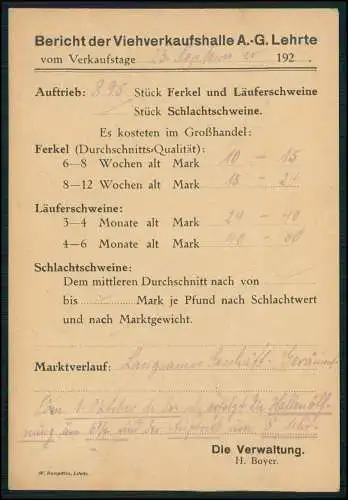 Bericht der Viehverkaufshalle A.-G. Lehrte
vom Verkaufstage 23. September 192 .
Auftrieb: 895 Stück Ferkel und Läuferschweine
Stück Schlachtschweine.
Es kosteten im Großhandel:
Ferkel (Durchschnitts-Qualität):
6—8 Wochen alt Mark 10 — 15
8—12 Wochen alt Mark 15 — 24
Läuferschweine:
3—4 Monate alt Mark 24 — 40
4—6 Monate alt Mark 40 —
Schlachtschweine:
Dem mittleren Durchschnitt nach von
bis Mark je Pfund nach Schlachtwert
und nach Marktgewicht.
Marktverlauf: Langsames Geschäft. Geräumt.
1. Oktober erfolgt die Hallenöff-
nung um und der
Die Verwaltung.
H. Boyer.
Lehrte.